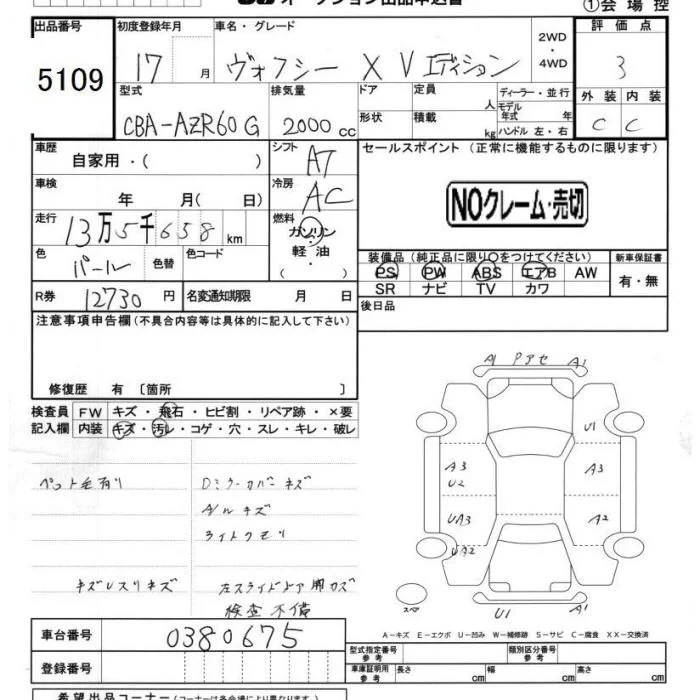 ①会場控
出品番号 初度登録年月 車名・グレード 評価点
5109 17 月 ヴォクシー X Vエディション 2WD・4WD 3
型式 排気量 ドア 定員 人 ディーラー・並行 外装 内装
CBA-AZR60G 2000cc 形状 積載 kg モデル年式 年 ハンドル 左・右 C C
車歴 自家用・( ) シフト AT セールスポイント(正常に機能するものに限ります)
車検 年 月( 日) 冷房 AC
NOクレーム・売切
走行 13万5千658km 燃料 ガソリン・軽油・
色 パール 色替 色コード 装備品(純正品に限り○をつけてください) 新車保証書
PS PW ABS エアB AW 有・無
SR ナビ TV カワ
R券 12730円 名変通知期限 月 日 後日品
注意事項申告欄(不具合内容等は具体的に記入して下さい)
修復歴 有〔箇所 〕
検査員記入欄 FW キズ・飛石・ヒビ割・リペア跡・×要
内装 キズ・汚レ・コゲ・穴・スレ・キレ・破レ
A1 Pアセ A1
U1
A3 U2 A3
UA3 A2
UA2
スペア U1 A1
ペット毛有り Dミラーカバーキズ
A/Wキズ
ライトクモリ
キズUスリキズ 左スライドドア開カズ
検査不備
A-キズ E-エクボ U-凹み W-補修跡 S-サビ C-腐食 XX-交換済
車台番号 0380675
型式指定番号 参考 類別区分番号 参考
登録番号 車庫証明用 参考 長さ cm 幅 cm 高さ cm
希望出品コーナー(コーナーは各会場により異なります)